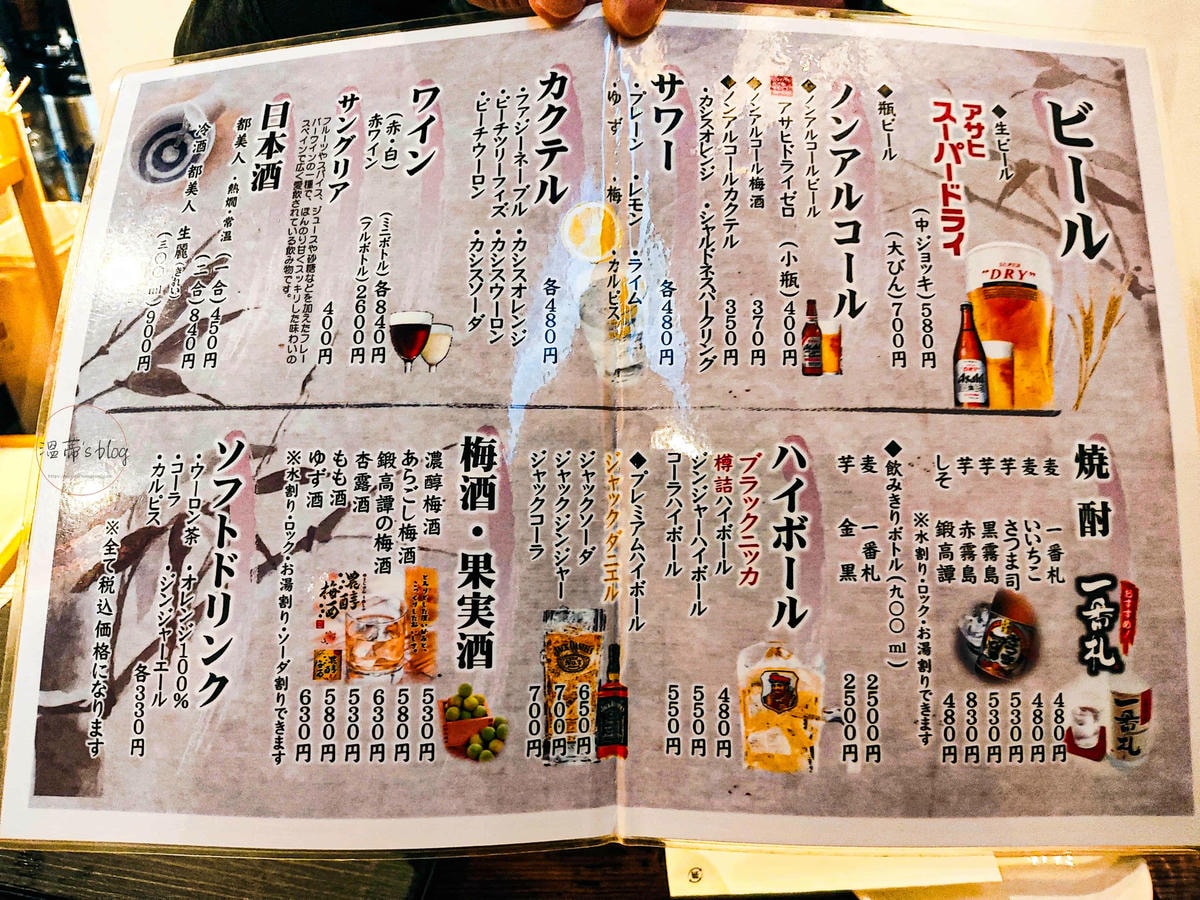 ビール
◆生ビール
アサヒ
スーパードライ
(中ジョッキ)580円
◆瓶ビール
(大びん)700円
ノンアルコール
◆ノンアルコールビール
アサヒドライゼロ (小瓶)400円
◆ノンアルコール梅酒 370円
◆ノンアルコールカクテル 350円
・カシスオレンジ ・シャルドネスパークリング
サワー 各480円
・プレーン ・レモン ・ライム
・ゆず ・梅 ・カルピス
カクテル 各480円
・ファジーネーブル ・カシスオレンジ
・ピーチツリーフィズ ・カシスウーロン
・ピーチウーロン ・カシスソーダ
ワイン
(赤・白) (ミニボトル)各840円
赤ワイン (フルボトル)2600円
サングリア 400円
フルーツやスパイス、ジュースや砂糖などを加えたフレー
バーワインの一種で、ほんのり甘くスッキリした味わいの
スペインで広く愛飲されている飲み物です。
日本酒
都美人 ・熱燗・常温 (一合)450円
(二合)840円
冷酒 都美人 生麗(きれい) (三〇〇ml)900円
焼酎
おすすめ!
一番札
麦 一番札 480円
麦 いいちこ 480円
芋 さつま司 530円
芋 黒霧島 530円
芋 赤霧島 830円
しそ 鍛高譚 480円
※水割り・ロック・お湯割りできます
◆飲みきりボトル(九〇〇ml)
麦 一番札 2500円
芋 金黒 2500円
ハイボール
ブラックニッカ
樽詰ハイボール 480円
ジンジャーハイボール 550円
コーラハイボール 550円
◆プレミアムハイボール
ジャックダニエル
ジャックソーダ 650円
ジャックジンジャー 700円
ジャックコーラ 700円
梅酒・果実酒
濃醇梅酒 530円
あらごし梅酒 580円
鍛高譚の梅酒 630円
杏露酒 530円
もも酒 580円
ゆず酒 630円
※水割り・ロック・お湯割り・ソーダ割りできます
ソフトドリンク
・ウーロン茶 ・オレンジ100%
・コーラ ・ジンジャーエール
・カルピス 各330円
※全て税込価格になります
"DRY"
Asahi
濃醇
梅酒
一番札
温蒂's blog